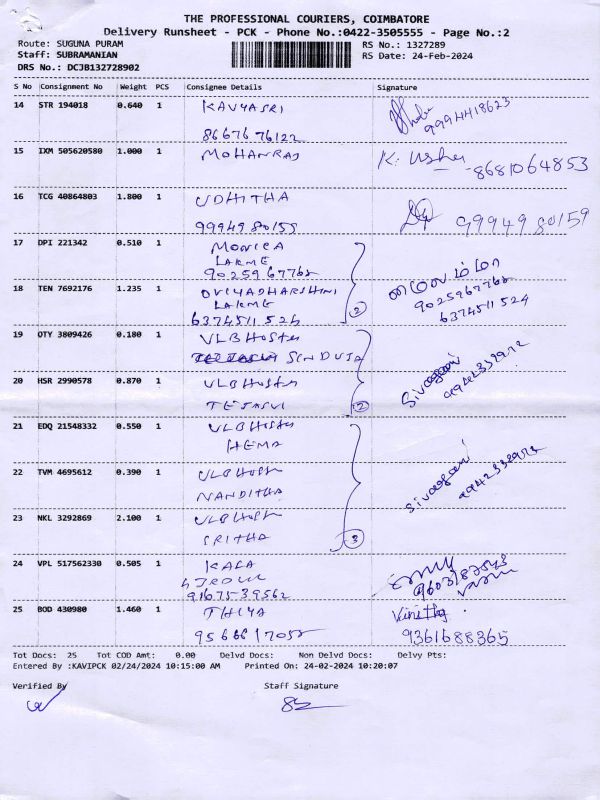 THE PROFESSIONAL COURIERS, COIMBATORE
Delivery Runsheet - PCK - Phone No.:0422-3505555 - Page No.:2
Route: SUGUNA PURAM RS No.: 1327289
Staff: SUBRAMANIAN RS Date: 24-Feb-2024
DRS No.: DCJB132728902
S No Consignment No Weight PCS Consignee Details Signature
14 STR 194018 0.640 1 KAVYASRI
86676 76122 9994418623
15 IXM 505620580 1.000 1 MOHANRAJ K. Usha 8681064853
16 TCG 40864803 1.800 1 UDHITHA
99949 80159 99949 80159
17 DPI 221342 0.510 1 MONICA
LAKME
90259 67768
18 TEN 7692176 1.235 1 OVIYADHARSHINI 9025967768
LAKME 2
6374511 524 6374511 524
19 OTY 3809426 0.180 1 VLB Hostel
SINDUJA
20 HSR 2990578 0.870 1 VLB Hostel Sivagami
TEJASVI 2
21 EDQ 21548332 0.550 1 VLB Hostel
HEMA
22 TVM 4695612 0.390 1 VLB Host Sivagami
NANDITHA
23 NKL 3292869 2.100 1 VLB Host
SRITHA 3
24 VPL 517562330 0.505 1 KALA
91675 39562
25 BOD 430980 1.460 1 THIYA Vinitha
95666 17052 9361688365
Tot Docs: 25 Tot COD Amt: 0.00 Delvd Docs: Non Delvd Docs: Delvy Pts:
Entered By :KAVIPCK 02/24/2024 10:15:00 AM Printed On: 24-02-2024 10:20:07
Verified By Staff Signature